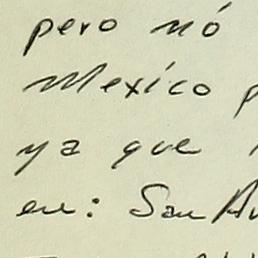 pero nó
Mexico
ya que
en: San